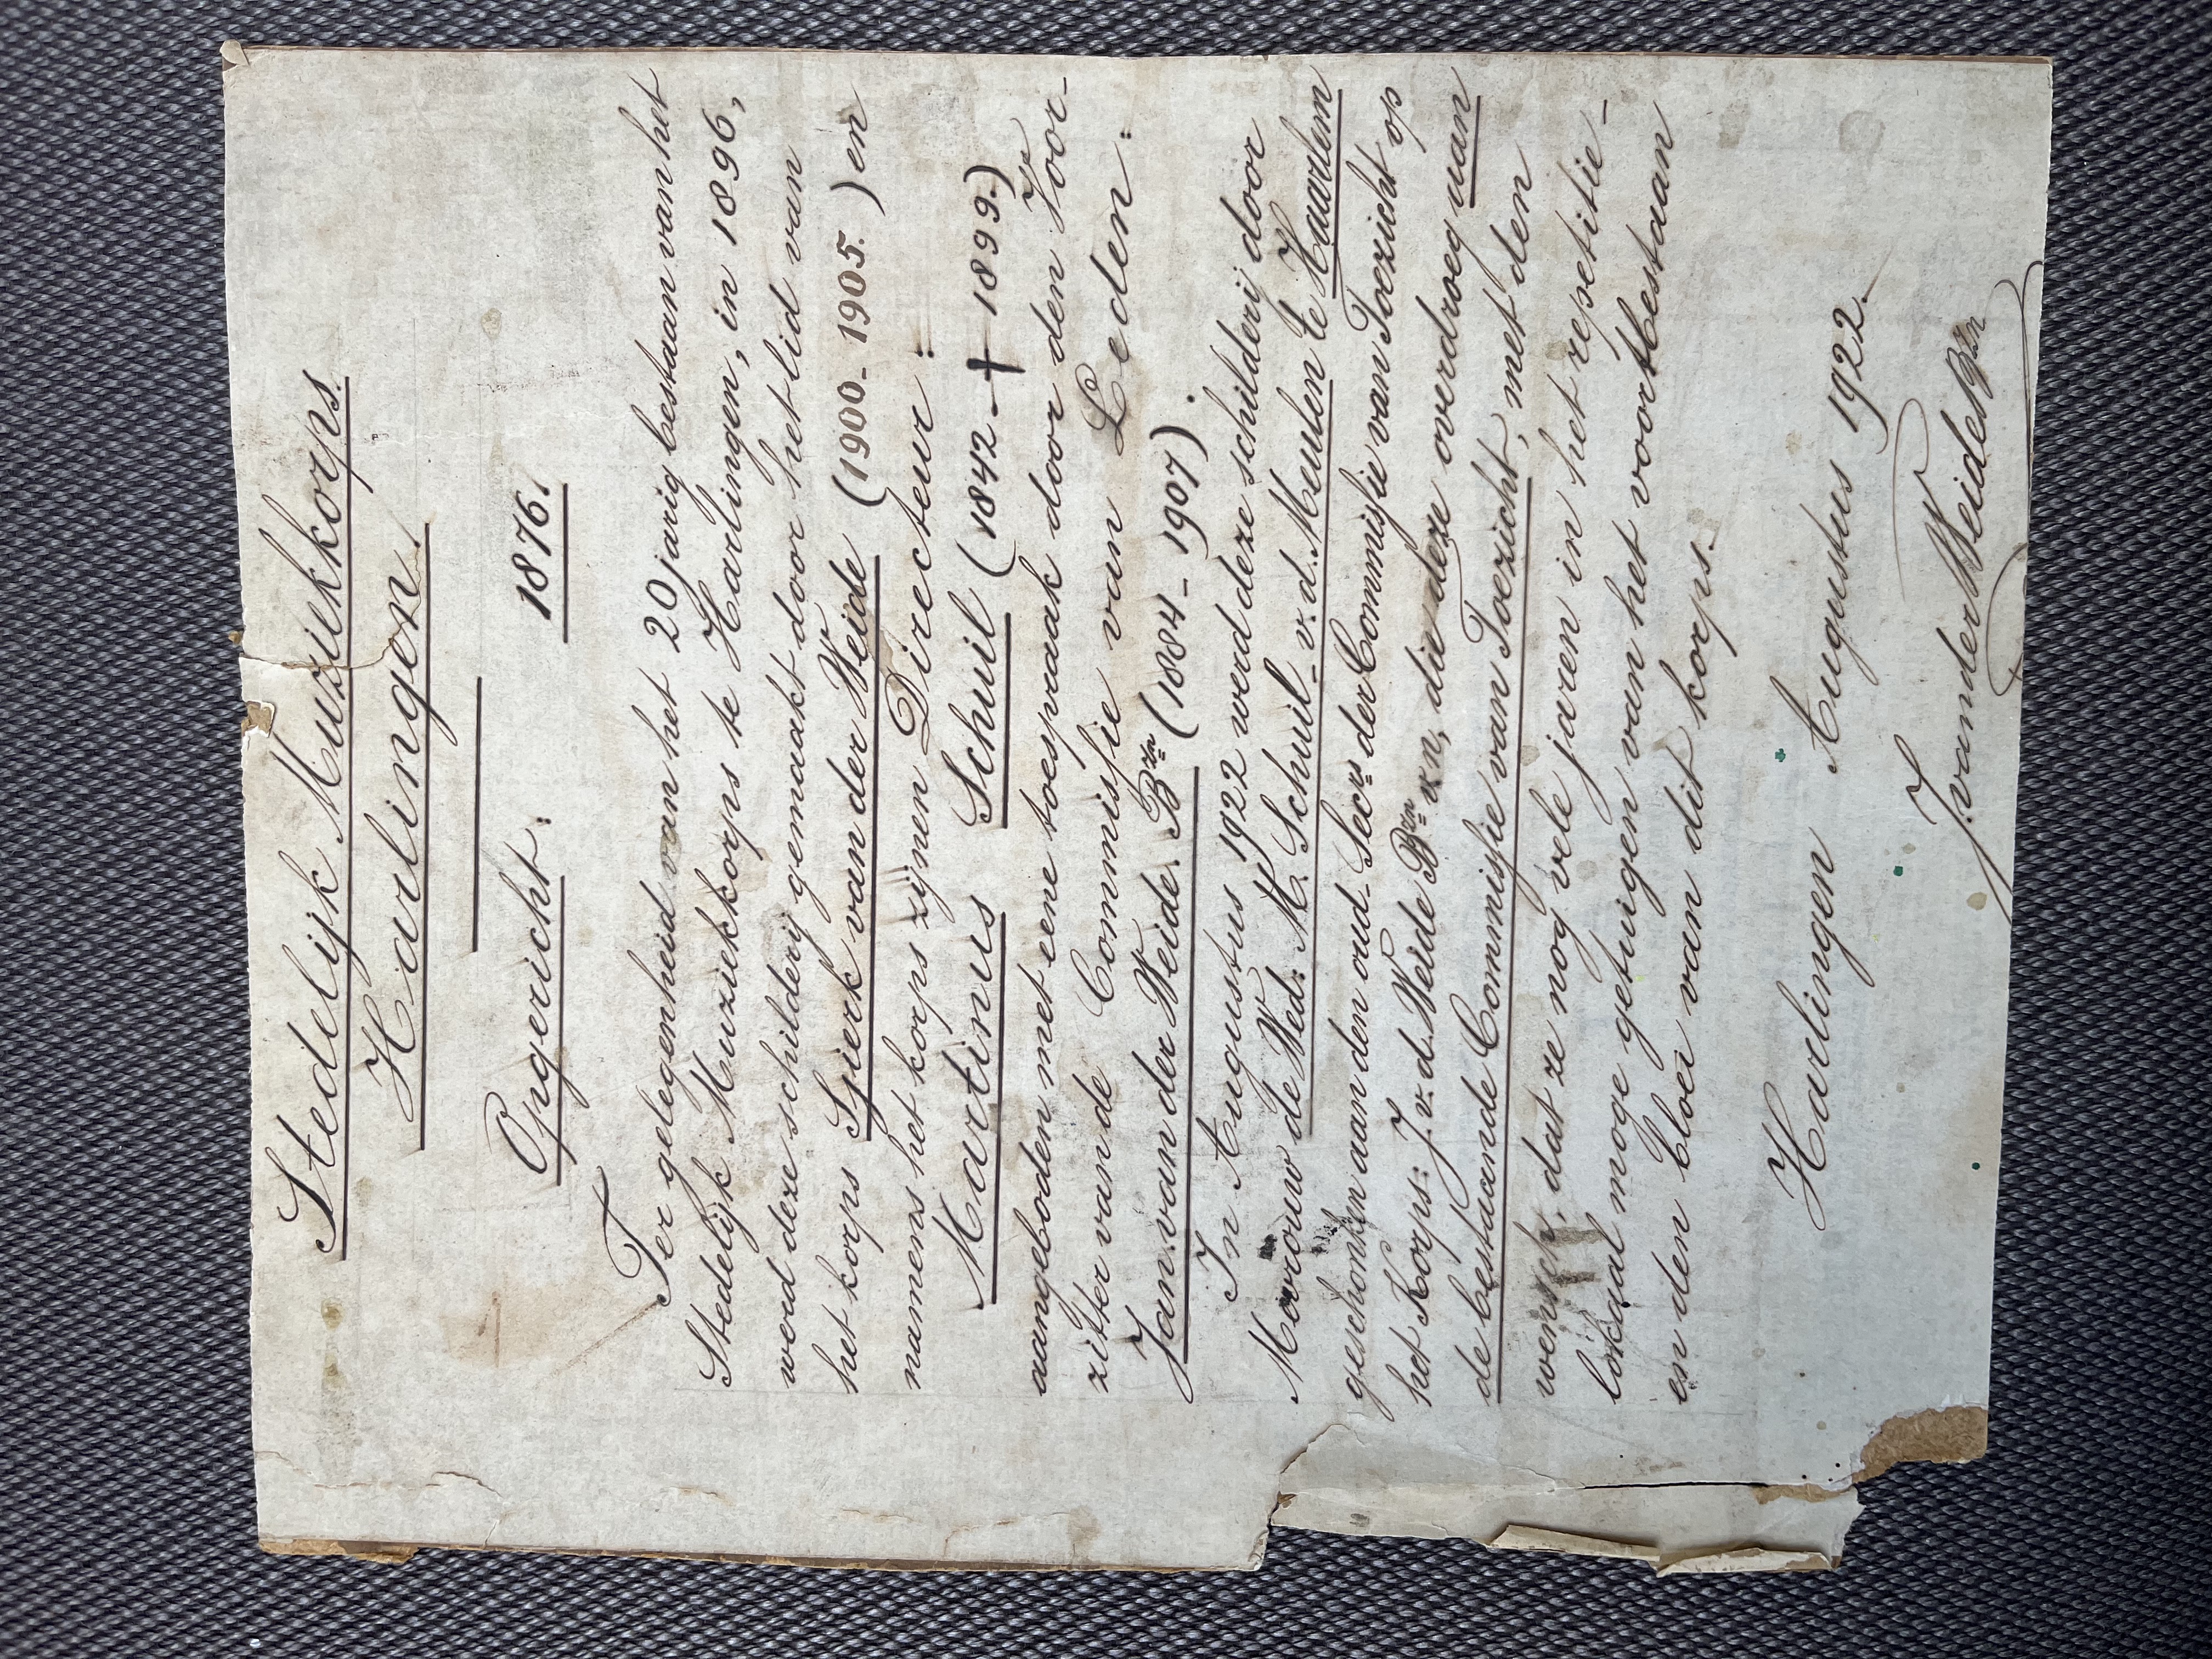 Stedelijk Muziekkorps
Harlingen.
Opgericht: 1876.
Ter gelegenheid van het 20 jarig bestaan van het
Stedelijk Muziekkorps te Harlingen, in 1896,
werd deze schilderij gemaakt door het lid van
het korps Sjierk van der Weide (1900-1905.) en
namens het korps zijnen Directeur:
Martinus Schuil (1842-✝1899.)
aangeboden met eene toespraak door den Voor-
zitter van de Commissie van Leden:
Jan van der Weide. Bzn (1884-1907).
In Augustus 1922 werd deze schilderij door
Mevrouw de Wed: M. Schuil-v.d. Meulen te Haarlem
geschonken aan den oud-Secrs der Commissie van Toezicht op
het Korps: J. v. d. Weide Bzn, die deze overdroeg aan
de bestaande Commissie van Toezicht, met den
wensch, dat ze nog vele jaren in het repetitie-
lokaal moge getuigen van het voortbestaan
en den bloei van dit korps.
Harlingen Augustus 1922.
J. van der Weide Bzn